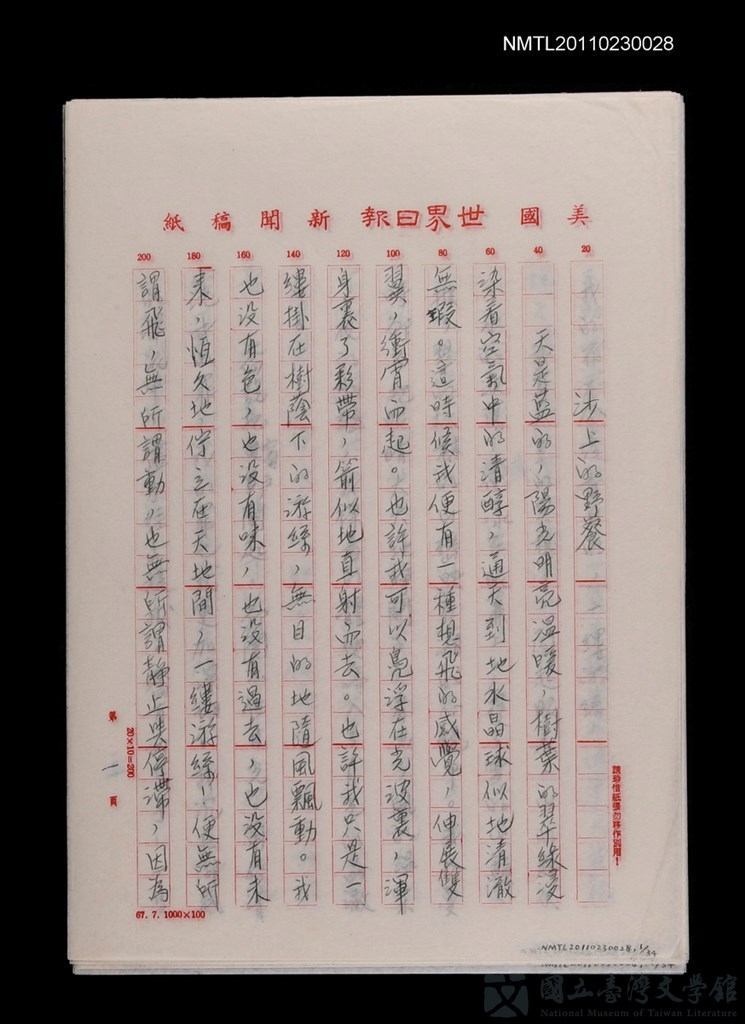 NMTL20110230028
美國世界日報新聞稿紙
20 40 60 80 100 120 140 160 180 200
沙上的野餐
天是藍的，陽光明亮溫暖，樹葉的翠綠浸
染着空氣中的清醇，通天到地水晶球似地清澈
無瑕。這時候我便有一種想飛的感覺，伸長雙
翼，衝霄而起。也許我可以鳧浮在光波裏，渾
身裏了彩帶，箭似地直射而去。也許我只是一
縷掛在樹蔭下的游絲，無目的地隨風飄動。我
也没有色，也没有味，也没有過去，也没有未
来，恆久地佇立在天地間，一縷游絲！便無所
謂飛，無所謂動，也無所謂静止與停滯，因為
請珍惜紙張勿移作別用！
20×10=200
第一頁
67. 7. 1000×100
NMTL20110230028, 1/34
國立臺灣文學館
National Museum of Taiwan Literature